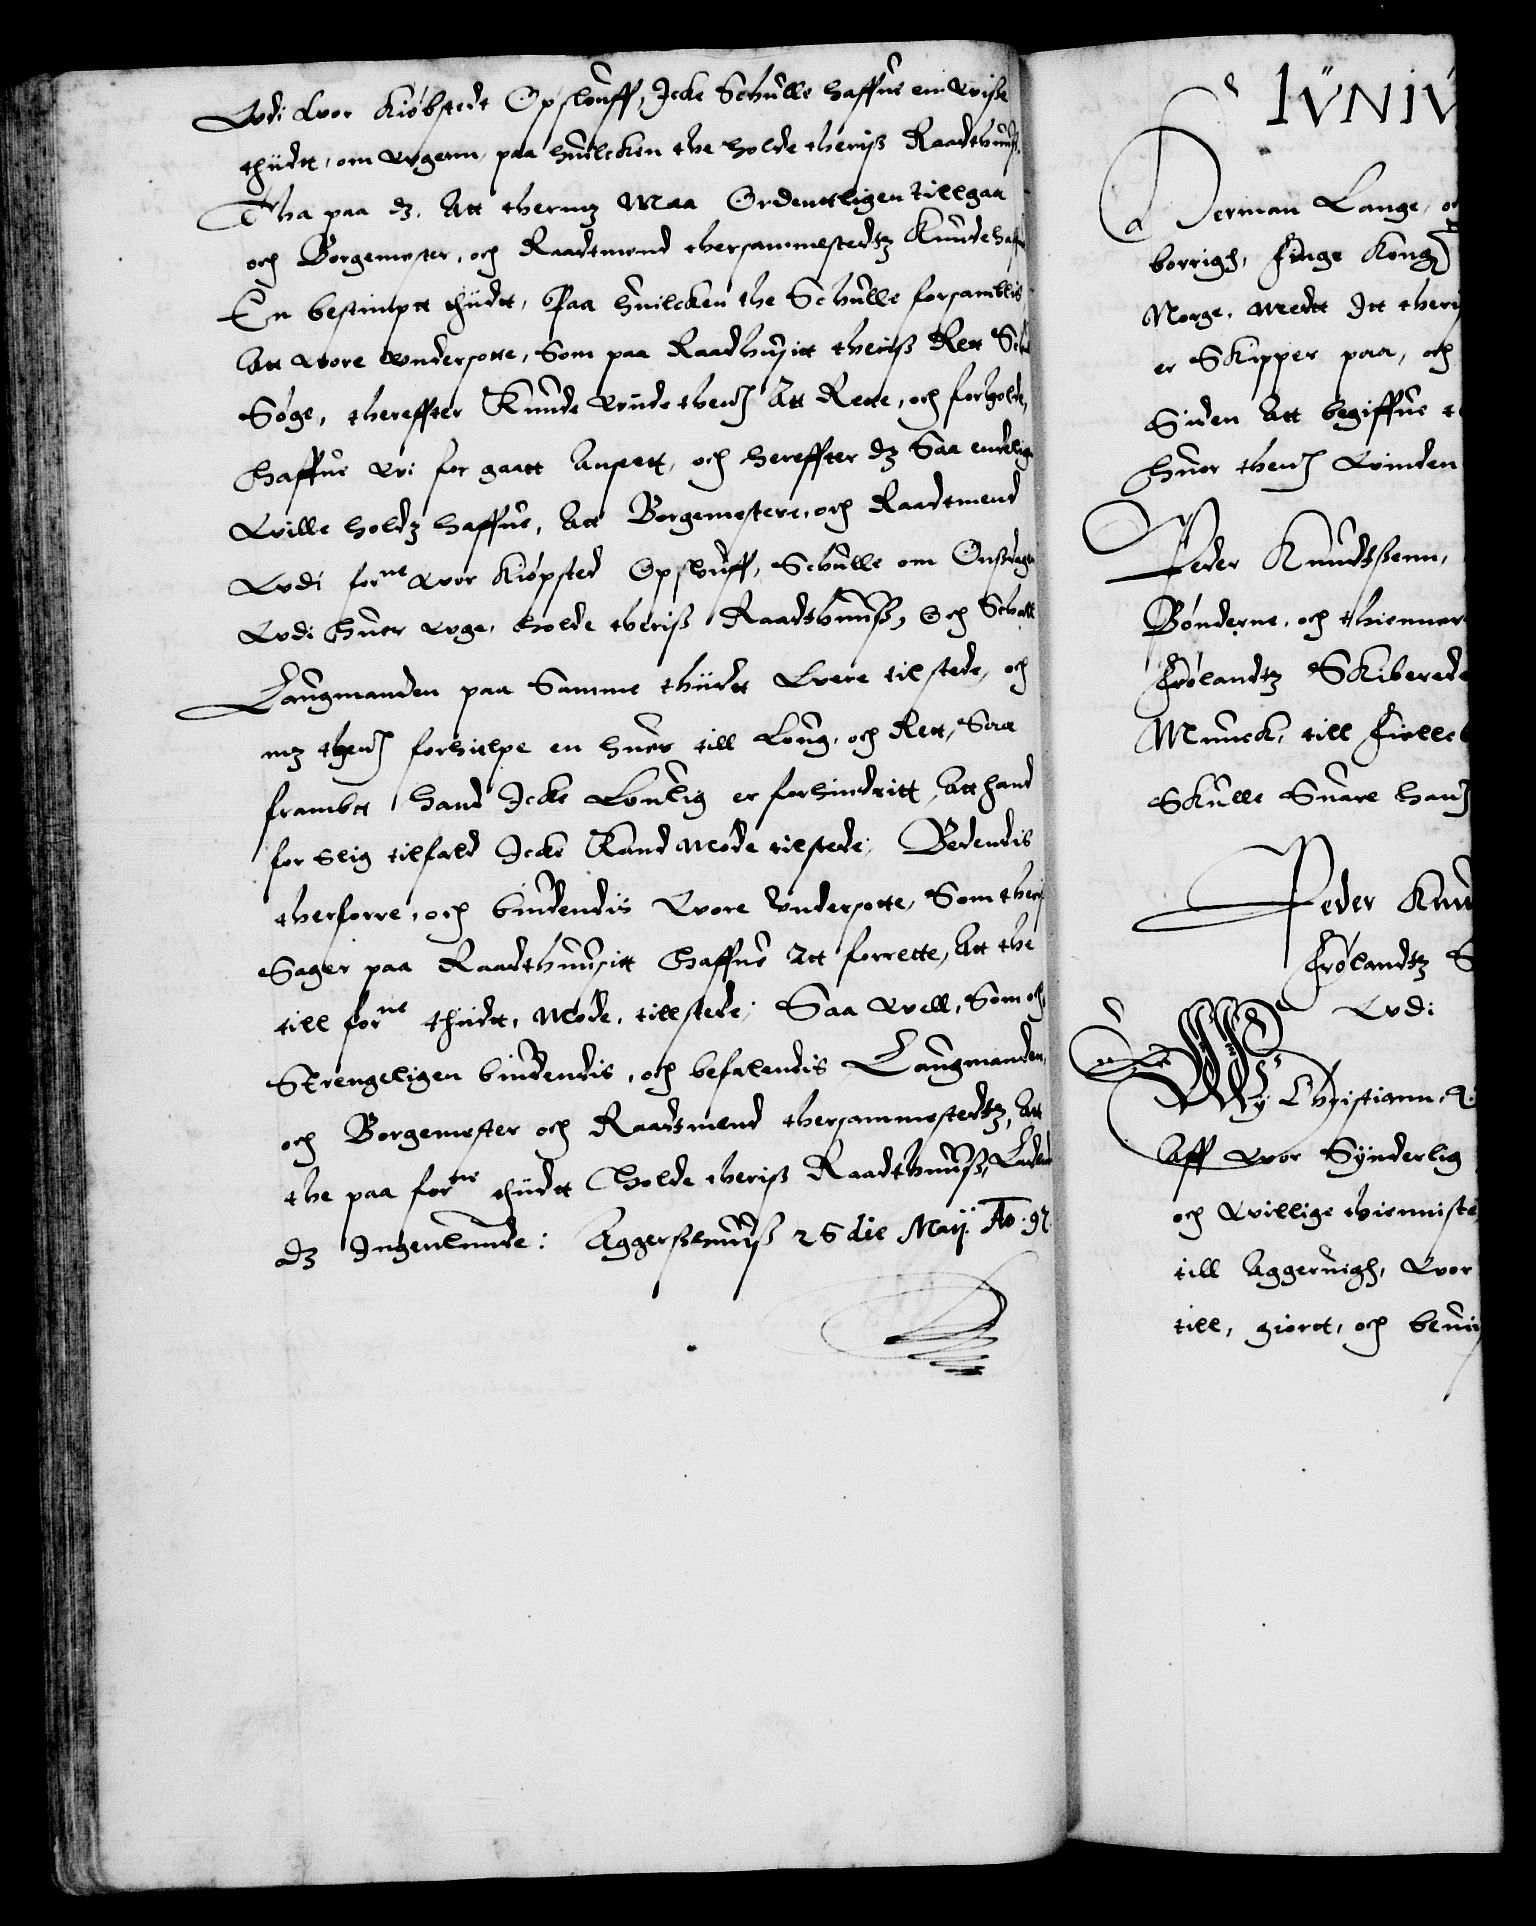 Udi Wor Kiøbstedt Opslouff, Icke Schulle haffue ein wisse
thiidtt, om Ugenn, paa huilcken the holde theriss Raadthuuss.
Tha paa dz, Att thermz Maa Ordenttligen tillgaa
och Borgemester, och Raadtmend thersammestedtz Kunde haffue
En bestimptt thiidtt, Paa huilcken the Schulle forsamblis
Att wore wndersotte, Som paa Raadhusitt theriss Rett Schulle
Søge, thereffter Kunde wiide thend Att Rette, och forholde,
Haffue wi for gaatt Ansett, och hereffter dz Saa endeligen
Wille holdz haffue, Att Borgemestere, och Raadtmend
Udi forne wor Kiøpsted Opslouff, Schulle om Onssdagen
Udi huer Uge, holde theriss Raadthuuss, Och Schall
Laugmanden paa Samme thiidtt Were til stede, och
mz thend forhielpe en huer till Loug, och Rett, Saa
frambtt hand Icke Louglig er forhindritt, Att hand
for Slig tilfald Icke Kand Møde tilstede, Bedendis
therforre, och biudendis Wore Undersotte, Som theris
Sager paa Raadthuusitt Haffue Att forrette, Att the
till forne thiidtt, Møde, tillstede, Saa Well, Som och
Strengeligen biudendis, och befalendis Laugmanden,
och Borgemester och Raadtmend thersammestedtz, Att
the paa forne thiidtt Holde theriss Raadthuuss, Ladendis
dz Ingenlunde: Aggersshuuss 26 die Maij Ao. 97.
IVNIV
Herman Lange,
borrigh, Finge Kong
Norge, Medtt Itt
er Skipper paa, och
Siden Att begiffue
huor thend Winden
Peder Knudtssenn,
Bønderne, och thienner
Frølandtz Skiberede
Munck, till
Skulle Suare hand
Peder Knud
Frølandtz S
Udi
Wy Christiann
Aff wor Synderlig
och Willige thienniste
till Aggeruigh, Wor
till, giortt, och beuii